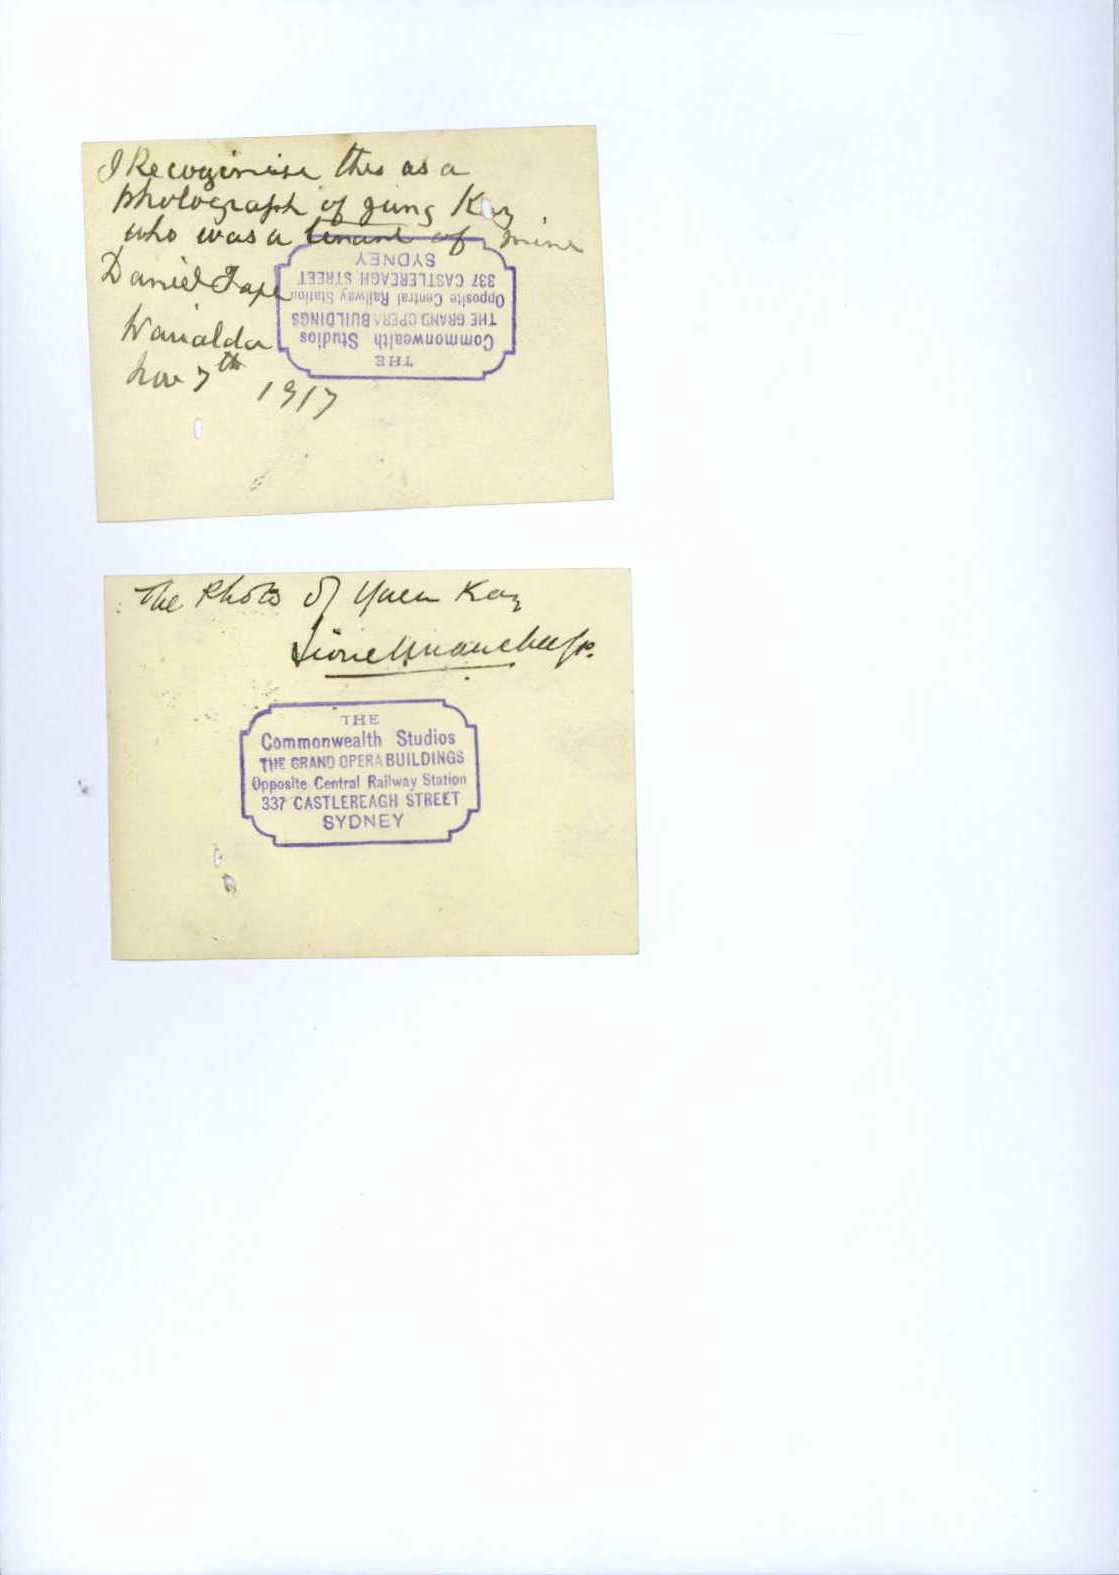 I Recoginise this as a
photograph of Jung Kay
who was a tenant of mine
Daniel Tape
Warialda
Nov 7th 1917
THE
Commonwealth Studios
THE GRAND OPERA BUILDINGS
Opposite Central Railway Station
337 CASTLEREAGH STREET
SYDNEY
The Photo of Yuen Kay
THE
Commonwealth Studios
THE GRAND OPERA BUILDINGS
Opposite Central Railway Station
337 CASTLEREAGH STREET
SYDNEY